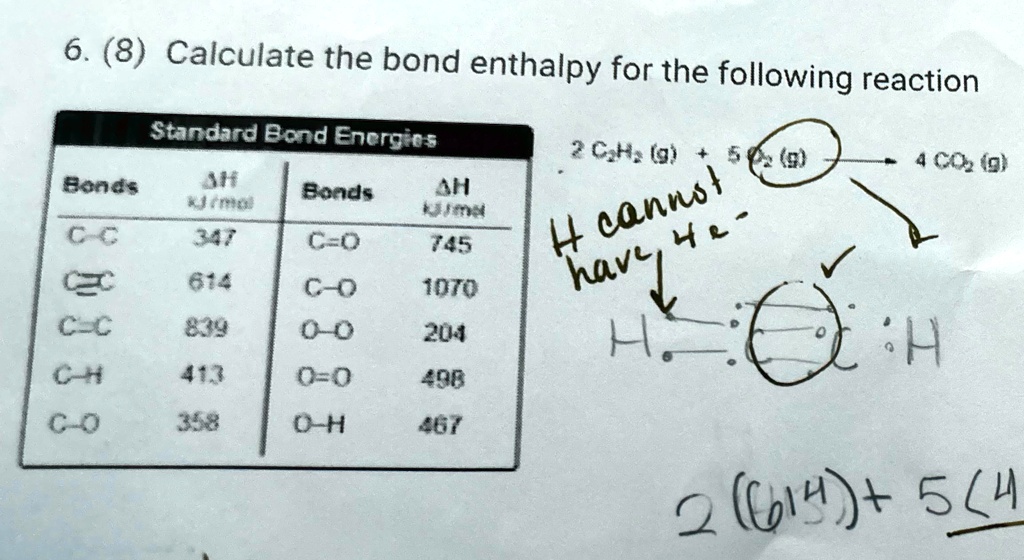 6. (8) Calculate the bond enthalpy for the following reaction
Standard Bond Energies
Bonds ΔH kJ/mol Bonds ΔH kJ/mol
C-C 347 C=O 745
C≡C 614 C-O 1070
C=C 839 O-O 204
C-H 413 O=O 498
C-O 358 O-H 467
2 C₂H₂ (g) + 5 O₂ (g) → 4 CO₂ (g)
H cannot
have 4 e⁻
H C :H
2 (614) + 5 (4